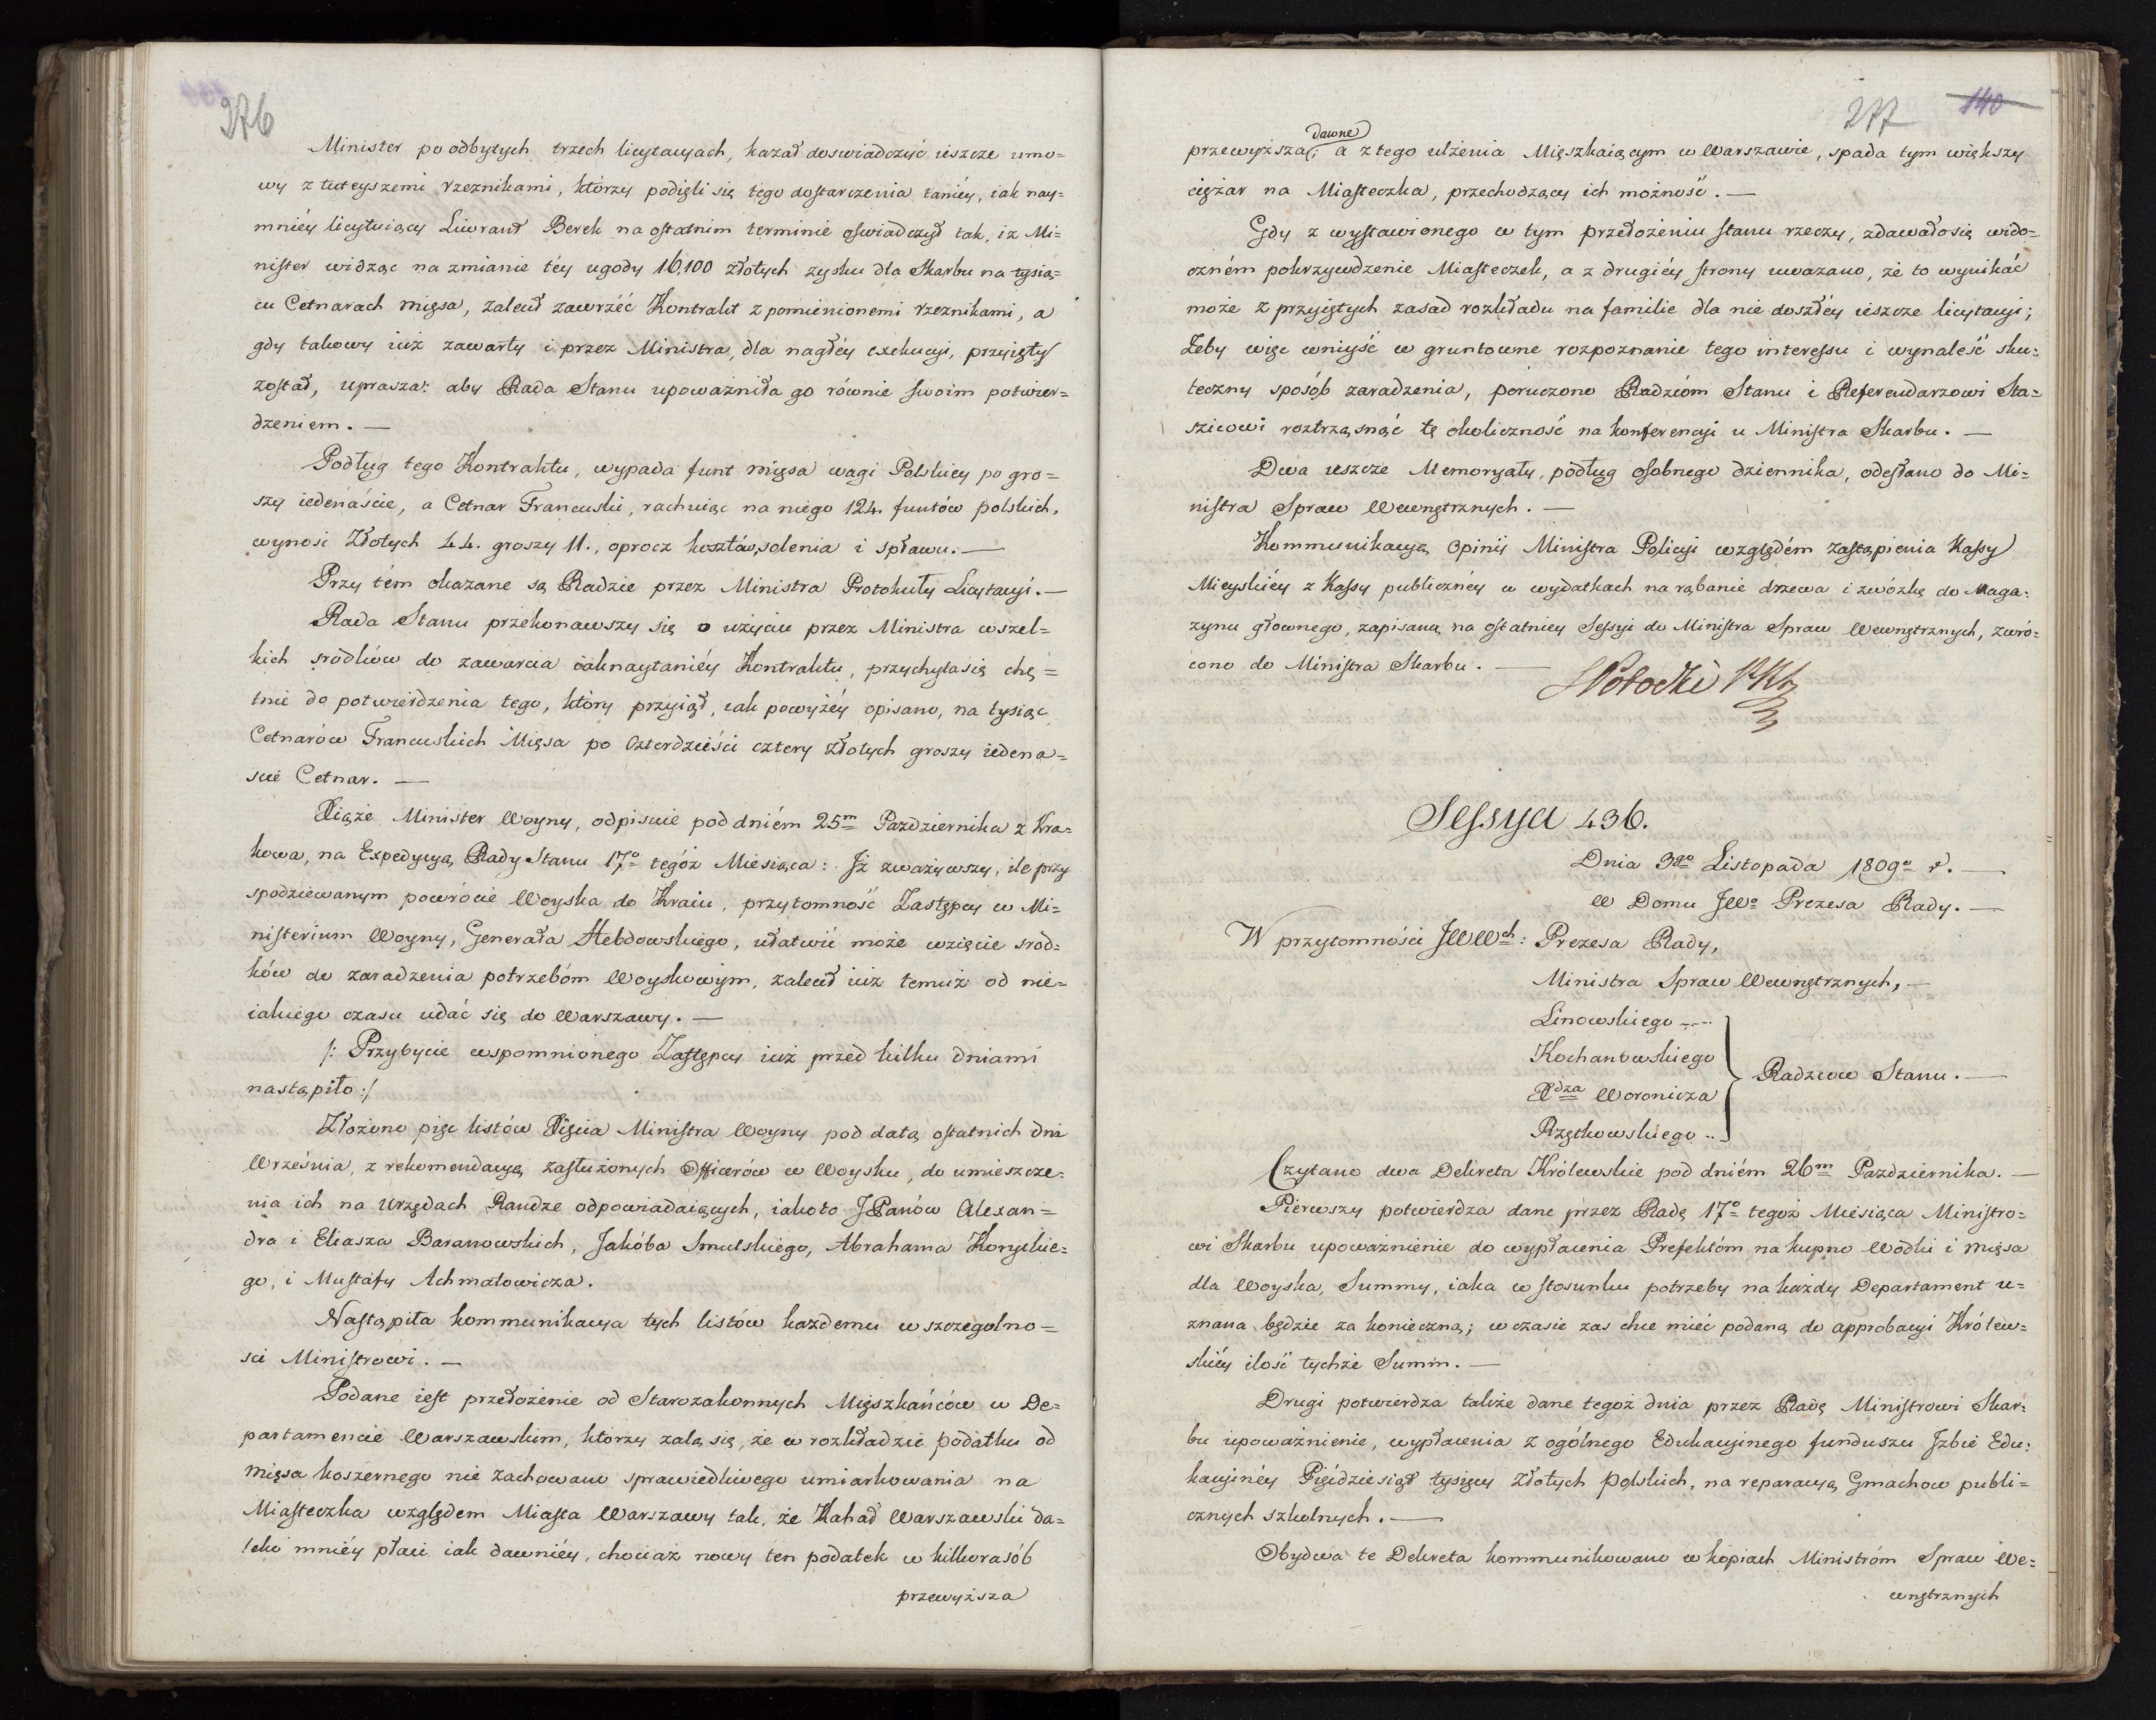 276
Minister po odbytych trzech licytacyach, kazał doswiadczyć ieszcze umo=
wy z tuteyszemi rzeznikami, którzy podięli się tego dostarczenia taniéy, iak nay=
mniéy licytuiący Liwrant Berek na ostatnim terminie oświadczył tak, iz Mi=
nister widząc na zmianie téy ugody 16,100 złotych zysku dla Skarbu na tysią=
cu Cetnarach mięsa, zalecił zawrzéć Kontrakt z pomienionemi rzeznikami, a
gdy takowy iuż zawarty i przez Ministra, dla nagłéy exekucyi, przyięty
został, uprasza: aby Rada Stanu upoważniła go równie swoim potwier=
dzeniem. —
Podług tego Kontraktu, wypada funt mięsa wagi Polskiey po gro=
szy iedenaście, a Cetnar Francuski, rachuiąc na niego 124. funtów polskich,
wynosi Złotych 44. groszy 11., oprocz kosztów, solenia i spławu. —
Przy tém okazane są Radzie przez Ministra Protokuły Licytacyi. —
Rada Stanu przekonawszy się o użyciu przez Ministra wszel=
kich srodków do zawarcia iaknaytaniéy Kontraktu, przychyla się chę=
tnie do potwierdzenia tego, który przyiął, iak powyżéy opisano, na tysiąc
Cetnarów Francuskich Mięsa po Czterdzieści cztery złotych groszy iedena=
scie Cetnar. —
Xiąże Minister Woyny, odpisuie pod dniém 25m Pazdziernika z Kra=
kowa, na Expedycyą Rady Stanu 17o tegóż Miesiąca: Iż zważywszy, ile przy
spodziewanym powrocie Woyska do Kraiu, przytomność Zastępcy w Mi=
nisterium Woyny, Generała Hebdowskiego, ułatwić może wzięcie srod=
ków do zaradzenia potrzebóm Woyskowym, zalecił iuż temuż od nie=
iakiego czasu udać się do Warszawy. —
/: Przybycie wspomnionego Zastępcy iuż przed kilku dniami
nastąpiło :/
Złożono pięć listów Xięcia Ministra Woyny pod datą ostatnich dni
Września, z rekomendacyą zasłużonych Officerów w Woysku, do umieszcze=
nia ich na Urzędach Randze odpowiadaiących, iakoto JPanów Alexan=
dra i Eliasza Baranowskich, Jakóba Smulskiego, Abrahama Koryckie=
go, i Mustafy Achmatowicza.
Nastąpiła kommunikacya tych listów każdemu w szczegolno=
sci Ministrowi. —
Podane iest przełożenie od Starozakonnych Mięszkańców w De=
partamencie Warszawskim, ktorzy żalą się, że w rozkładzie podatku od
Mięsa koszernego nie zachowano sprawiedliwego umiarkowania na
Miasteczka względem Miasta Warszawy tak, że Kahał Warszawski da=
leko mniéy płaci iak dawniéy, chociaż nowy ten podatek w kilkorasób
przewyższa
277 140
dawne
przewyższa; a z tego ulżenia Mięszkaiącym w Warszawie, spada tym większy
ciężar na Miasteczka, przechodzący ich możność. —
Gdy z wystawionego w tym przełożeniu stanu rzeczy, zdawało się wido=
czném pokrzywdzenie Miasteczek, a z drugiéy strony uważano, że to wynikać
może z przyiętych zasad rozkładu na familie dla nie doszłéy ieszcze licytacyi;
Żeby więc wniyść w gruntowne rozpoznanie tego interessu i wynaleść sku=
teczny sposób zaradzenia, poruczono Radzcóm Stanu i Referendarzowi Sta=
szicowi roztrząsnąć tę okoliczność na konferencyi u Ministra Skarbu. —
Dwa ieszcze Memoryały, podług osobnego dziennika, odesłano do Mi=
nistra Spraw Wewnętrznych. —
Kommunikacyą opinii Ministra Policyi względém zastąpienia Kassy
Mieyskiéy z Kassy publicznéy w wydatkach na rąbanie drzewa i zwózkę do Maga=
zynu głownego, zapisaną na ostatniey Sessyi do Ministra Spraw Wewnętrznych, zwró=
cono do Ministra Skarbu. —
Potocki
Sessya 436.
Dnia 3go Listopada 1809o r. —
W Domu JWo Prezesa Rady. —
W przytomności JWWch: Prezesa Rady,
Ministra Spraw Wewnętrznych, —
Linowskiego
Kochanowskiego
Xdza Woronicza
Radzcow Stanu. —
Rzętkowskiego
Czytano dwa Dekreta Królewskie pod dniém 26m Pazdziernika. —
Pierwszy potwierdza dane przez Radę 17o tegoż Miesiąca Ministro=
wi Skarbu upoważnienie do wypłacenia Prefektóm na kupno Wodki i Mięsa
dla Woyska, Summy, iaka w stosunku potrzeby na każdy Departament u=
znana będzie za konieczną; w czasie zas chce mieć podaną do approbacyi Królew=
skiéy ilość tychże Summ. —
Drugi potwierdza także dane tegoż dnia przez Radę Ministrowi Skar=
bu upoważnienie, wypłacenia z ogólnego Edukacyinego funduszu Izbie Edu=
kacyinéy Pięćdziesiąt tysięcy Złotych Polskich, na reparacyą Gmachow publi=
cznych szkolnych. —
Obydwa te Dekreta kommunikowano w kopiach Ministróm Spraw We=
wnętrznych